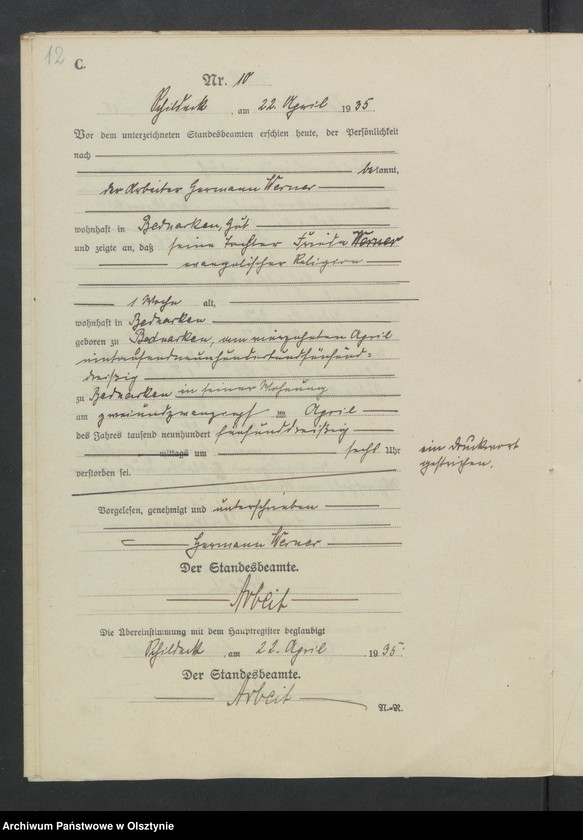 12
C.
Nr. 10
Schildeck, am 22. April 1935
Vor dem unterzeichneten Standesbeamten erschien heute, der Persönlichkeit
nach
bekannt,
der Arbeiter Hermann Werner
wohnhaft in Bednarken, Gut
und zeigte an, daß seine Tochter Frieda Werner
evangelischer Religion
1 Woche alt,
wohnhaft in Bednarken
geboren zu Bednarken, am vierzehnten April
eintausendneunhundertundfünfund-
dreißig
zu Bednarken in seiner Wohnung
am zweiundzwanzigst im April
des Jahres tausend neunhundert fünfunddreißig
mittags um sechs Uhr
verstorben sei.
ein Druckwort
gestrichen.
Vorgelesen, genehmigt und unterschrieben
Hermann Werner
Der Standesbeamte.
Arbeit
Die Übereinstimmung mit dem Hauptregister beglaubigt
Schildeck, am 22. April 1935.
Der Standesbeamte.
Arbeit
N.-R.
Archiwum Państwowe w Olsztynie